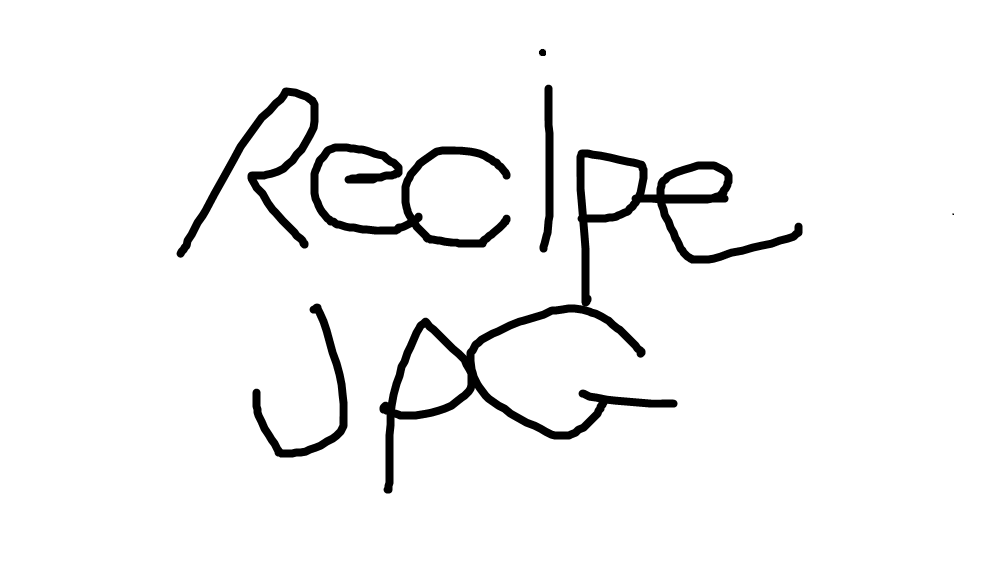 Recipe
JPG